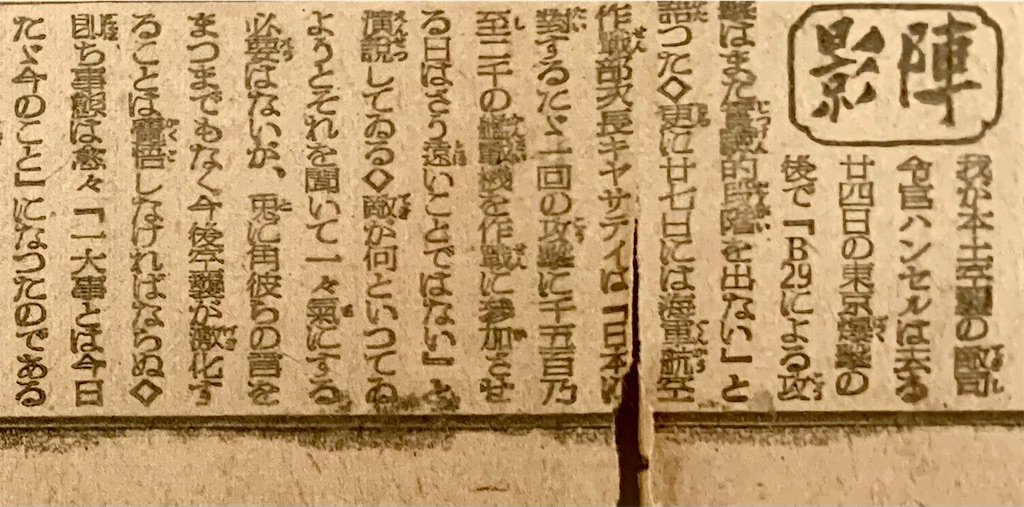 陣影
我が本土空襲の敵司
令官ハンセルは去る
廿四日の東京爆撃の
後で『B29による攻
撃はまだ實驗的段階を出ない』と
語つた◇更に廿七日には海軍航空
作戰部次長キヤサデイは『日本に
對するたゞ一回の攻撃に千五百乃
至二千の艦載機を作戰に參加させ
る日はさう遠いことではない』と
演說してゐる◇敵が何といつてゐ
ようとそれを聞いて一々氣にする
必要はないが、兎に角彼らの言を
まつまでもなく今後空襲が激化す
ることは覺悟しなければならぬ◇
卽ち事態は愈々『一大事とは今日
たゞ今のこと』になつたのである